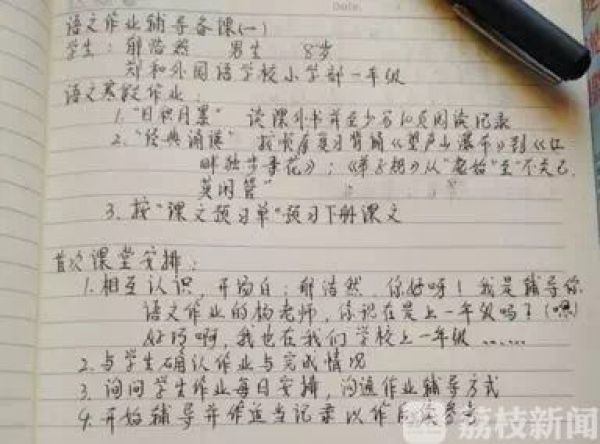 Date.
语文作业辅导备课(一)
学生：郁浩然 男生 8岁
郑和外国语学校小学部一年级
语文寒假作业：
1."日积月累" 读课外书并至少写10页阅读记录
2."经典诵读" 按顺序复习背诵《望庐山瀑布》到《江
畔独步寻花》；《弟子规》从" "至"不关己,
莫闲管"
3.按"课文预习单"预习下册课文
首次课堂安排：
1.相互认识，开场白：郁浩然，你好呀！我是辅导你
语文作业的杨老师，你现在是上一年级吗？(嗯)
好巧啊，我也在我们学校上一年级……
2.与学生确认作业与完成情况
3.询问学生作业每日安排，沟通作业辅导方式
4.开始辅导并作适当记录以作 参考
荔枝新闻